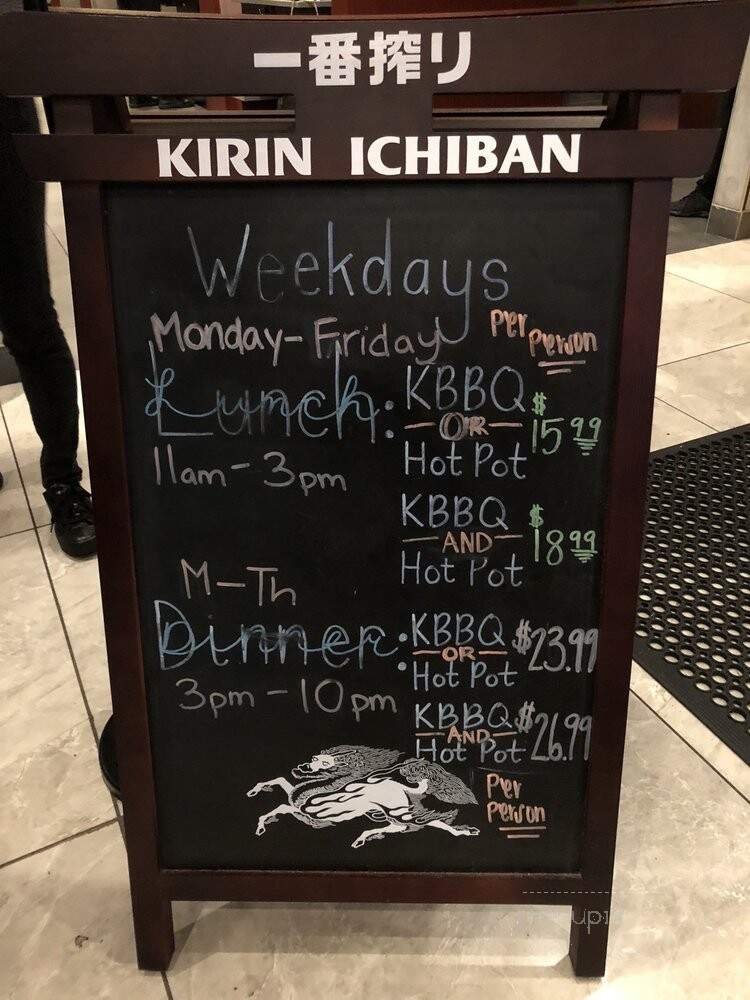 一番搾り
KIRIN ICHIBAN
Weekdays
Monday-Friday
Per Person
Lunch:
11am-3pm
KBBQ
OR
Hot Pot
$15.99
KBBQ
AND
Hot Pot
$18.99
M-Th
Dinner:
3pm-10pm
KBBQ
OR
Hot Pot
$23.99
KBBQ
AND
Hot Pot
$26.99
Per
Person